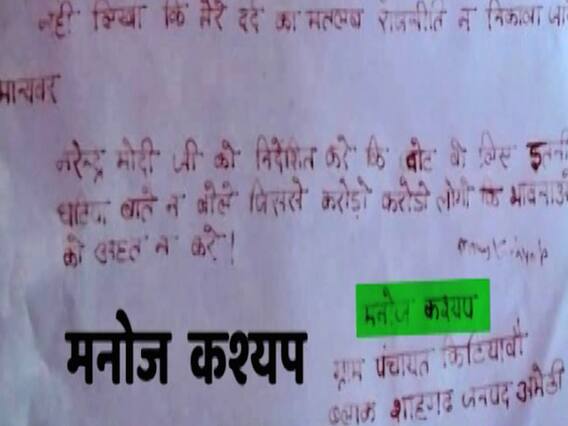 नही लिखा कि मेरे दर्द का मतलब राजनीति न निकाला जाए
मान्यवर
नरेन्द्र मोदी जी को निर्देशित करे कि वोट के लिए इतनी
घटिया बाते न बोले जिससे करोड़ो करोड़ो लोगो कि भावनाओ
को आहत न करे।
मनोज कश्यप
मनोज कश्यप
ग्राम पंचायत किटियावाँ
ब्लाक शाहगढ जनपद अमेठी